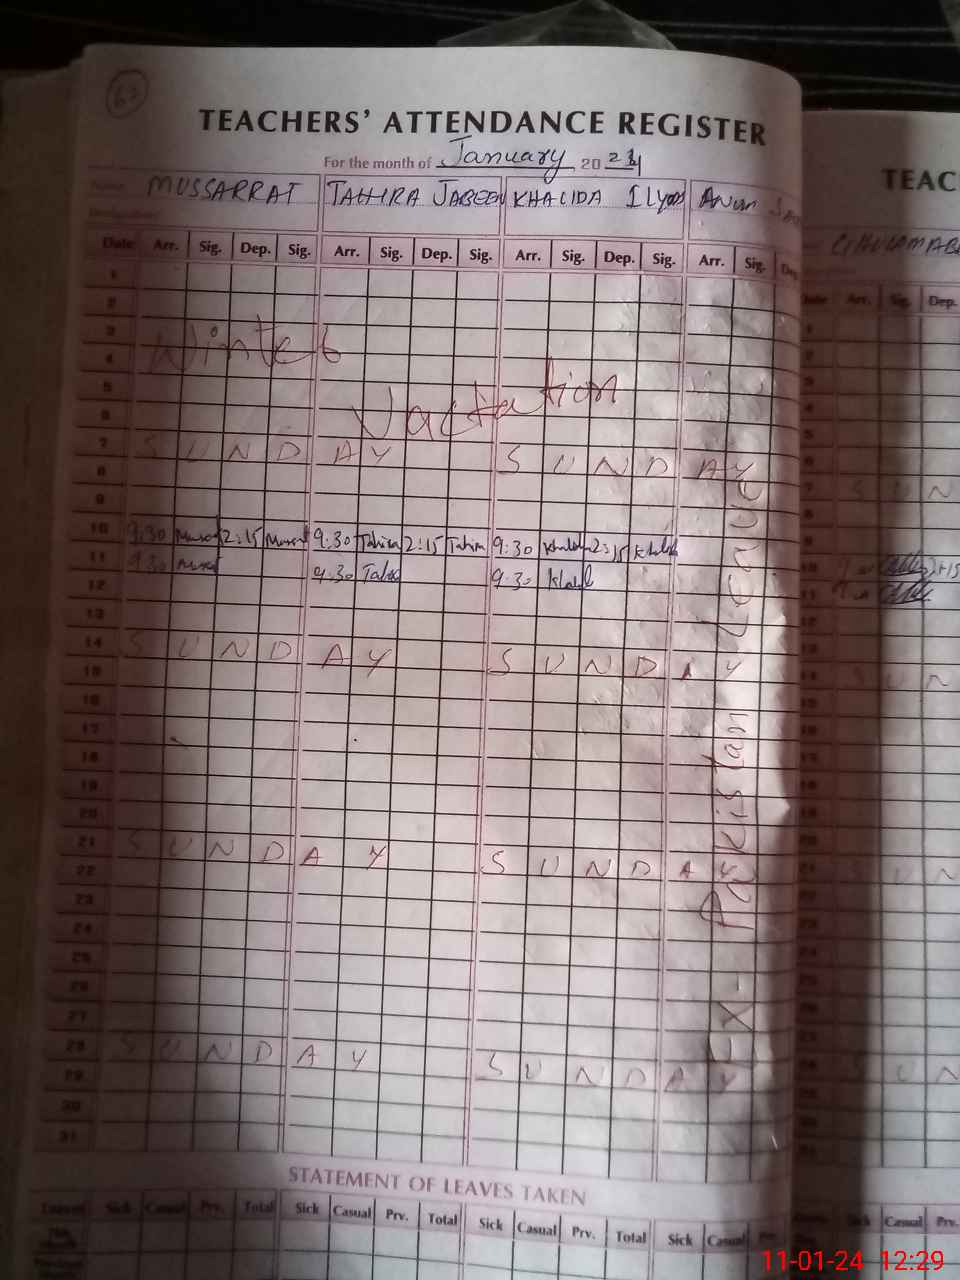 63
TEACHERS' ATTENDANCE REGISTER
TEAC
For the month of January 2024
Name MUSSARRAT TAHIRA JABEEN KHALIDA ILyas Anum
Date Arr. Sig. Dep. Sig. Arr. Sig. Dep. Sig. Arr. Sig. Dep. Sig. Arr. Sig. Dep
Date Arr. Sig. Dep.
1
2
3
Winter
4
5
Vactation
6
7 SUNDAY SUNDAY SUN
8
9
10 9:30 2:15 9:30 Tahira 2:15 Tahira 9:30 2:15
11 9:30 9:30 9:30
12
13
14 SUNDAY SUNDAY SUN
15
16
17
18
19
20
21 SUNDAY SUNDAY SUN
22
23
24
25
26
27
28 SUNDAY SUNDAY SUN
29
30
31
EX-Pakistan Leave
STATEMENT OF LEAVES TAKEN
Leaves Sick Casual Prv. Total Sick Casual Prv. Total Sick Casual Prv. Total Sick Casual
Sick Casual Prv.
11-01-24 12:29